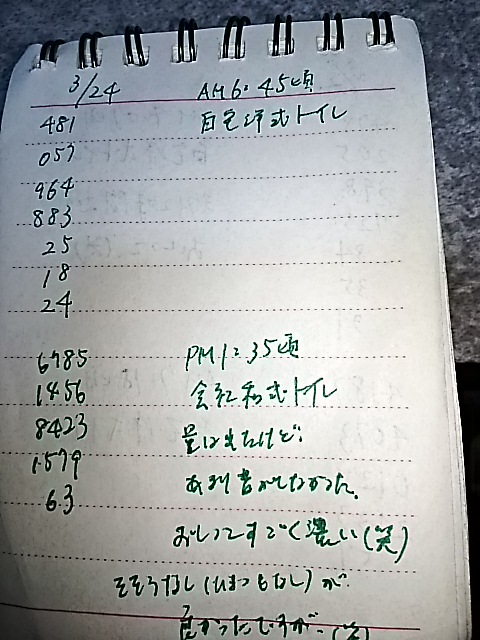 3/24 AM6:45頃
481 自宅洋式トイレ
057
964
883
25
18
24
6785 PM1:35頃
1456 会社和式トイレ
8423 量は出たけど、
1579 あまり音がしなかった。
63
おしっこすごく濃い(笑)
そそうなし(いつもなし)が
良かったですが(笑)